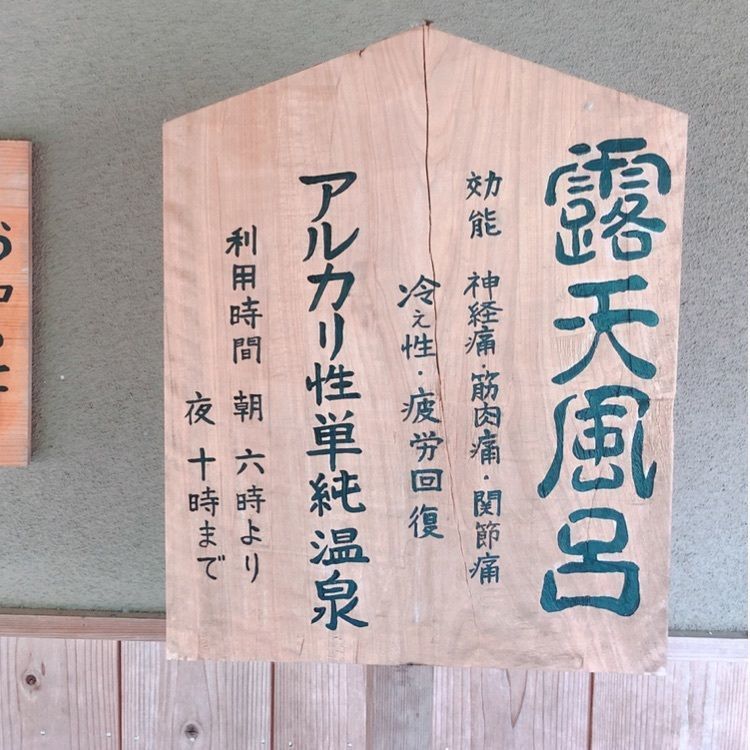 露天風呂
効能 神経痛・筋肉痛・関節痛
冷え性・疲労回復
アルカリ性単純温泉
利用時間 朝 六時より
夜 十時まで